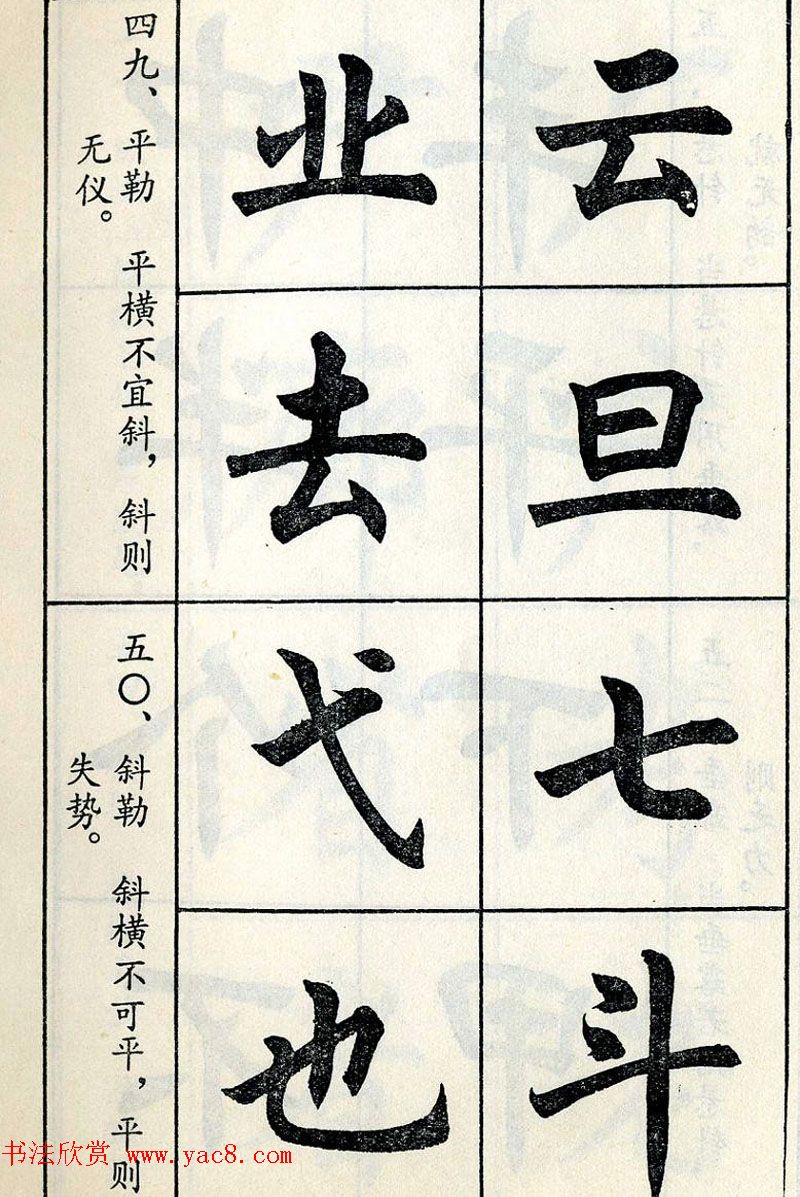 四九、平勒 平横不宜斜，斜则
无仪。
云 业
旦 去
五〇、斜勒 斜横不可平，平则
失势。
七 弋
斗 也
书法欣赏 www.yac8.com